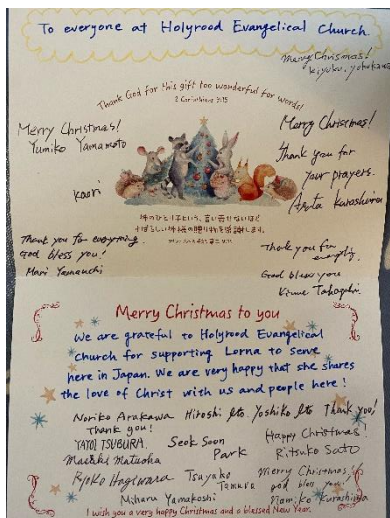 To everyone at Holyrood Evangelical Church.
Merry Chrismas!
kiyoko. yokokawa
Thank God for this gift too wonderful for words!
2 Corinthians 9:15
Merry Christmas!
Yumiko Yamamoto
Merry Christmas!
Thank you for
your prayers.
Kurashima
Kaori
神のひとり子という、言い表せないほど
すばらしい神様の贈り物を感謝します。
Thank you for everything.
God bless you!
Mari Yamauchi
Thank you for
God bless you
Merry Christmas to you
We are grateful to Holyrood Evangelical
Church for supporting Lorna to serve
here in Japan. We are very happy that she shares
the love of Christ with us and people here!
Noriko Arakawa Hiroshi Ito. Yoshiko Ito Thank you!
Thank you!
YAYOI TSUBURA. Seok Soon Happy Christmas!
Park Ritsuko Sato
Masaki Matsuoka
Ryoko Hagiwara Tsuyako Merry Christmas.
Tamura god bless you!
Miharu Yamakoshi Namiko Kurashima
I wish you a very happy Christmas and a blessed New Year.